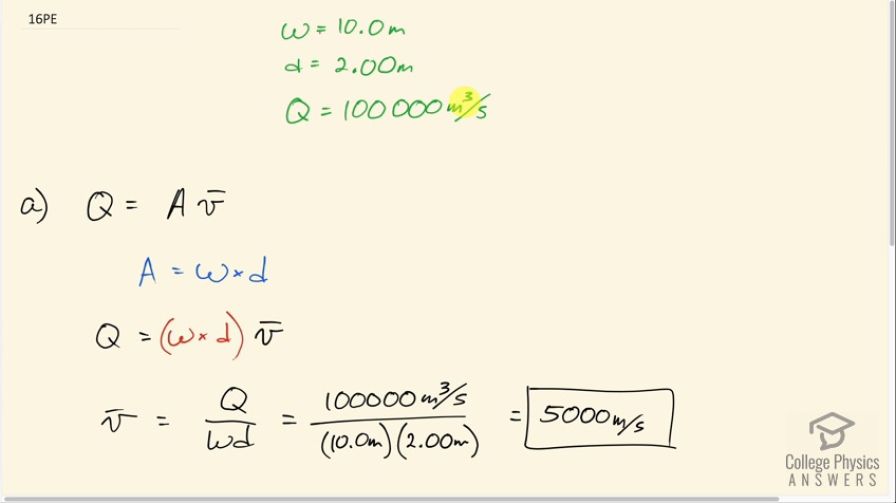 16PE
w = 10.0m
d = 2.00m
Q = 100 000 m³/s
a) Q = A v̄
A = w × d
Q = (w × d) v̄
v̄ = Q/wd = 100000 m³/s / (10.0m)(2.00m) = 5000 m/s
College Physics
ANSWERS